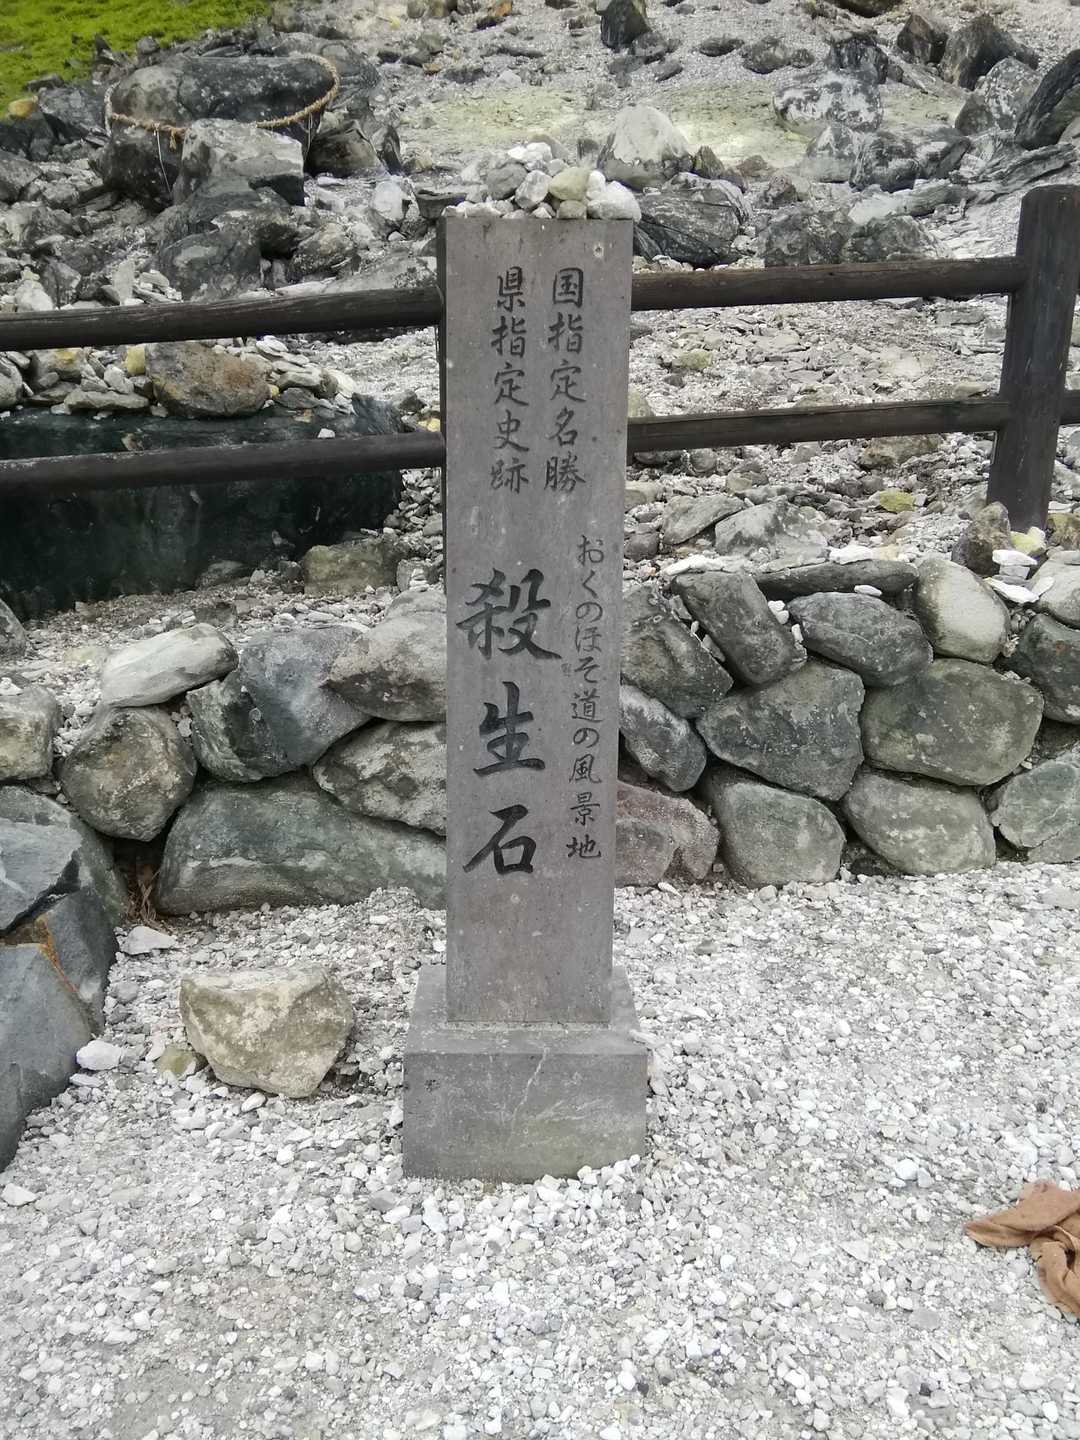 国指定名勝
県指定史跡
おくのほそ道の風景地
殺生石